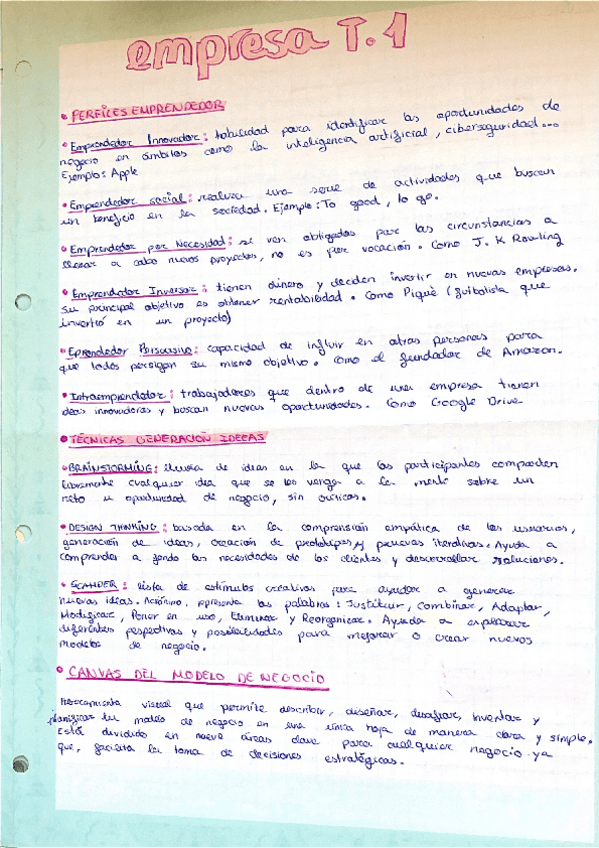 empresa T.1
• PERFILES EMPRENDEDOR
• Emprendedor Innovador: habilidad para identificar las oportunidades de
negocio en ámbitos como la inteligencia artificial, ciberseguridad...
Ejemplo: Apple
• Emprendedor social: realiza una serie de actividades que buscan
un beneficio en la sociedad. Ejemplo: To good, to go.
• Emprendedor por Necesidad: se ven obligados por las circunstancias a
llevar a cabo nuevos proyectos, no es por vocación. Como J. K Rowling
• Emprendedor Inversor: tienen dinero y deciden invertir en nuevas empresas.
Su principal objetivo es obtener rentabilidad. Como Piqué (futbolista que
invirtió en un proyecto)
• Eprendedor Persuasivo: capacidad de influir en otras personas para
que todos persigan su mismo objetivo. Como el fundador de Amazon.
• Intraemprendedor: trabajadores que dentro de una empresa tienen
ideas innovadoras y buscan nuevas oportunidades. Como Google Drive
• TÉCNICAS GENERACIÓN IDEEAS
• BRAINSTORMING: lluvia de ideas en la que los participantes comparten
libremente cualquier idea que se les venga a la mente sobre un
reto u oportunidad de negocio, sin críticas.
• DESIGN THINKING: basada en la comprensión empática de los usuarios,
generación de ideas, creación de prototipos y pruebas iterativas. Ayuda a
comprender a fondo las necesidades de los clientes y desarrollar soluciones.
• SCAMPER: lista de estímulos creativos para ayudar a generar
nuevas ideas. Acrónimo, representa las palabras: Sustituir, Combinar, Adaptar,
Modificar, Poner en uso, Eliminar y Reorganizar. Ayuda a explorar
diferentes perspectivas y posibilidades para mejorar o crear nuevos
modelos de negocio.
• CANVAS DEL MODELO DE NEGOCIO
Herramienta visual que permite describir, diseñar, desafiar, inventar y
planificar tu modelo de negocio en una única hoja de manera clara y simple.
Está dividido en nueve áreas clave para cualquier negocio ya
que, facilita la toma de decisiones estratégicas.